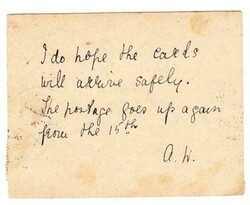 I do hope the cards
will arrive safely.
The postage goes up again
from the 15th
A. W.